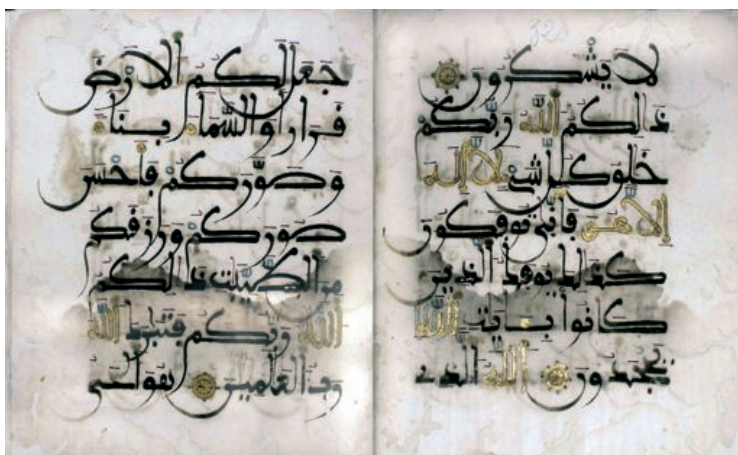 لا يشكرون
ذالكم الله ربّكم
خلق كل شيء لا إله
إلا هو فأنّى توفكون
كذلك يوفك الذين
كانوا بـايت الله
يجحدون الله الذي
جعل لكم الارض
قرارا والسّماء بناء
وصوّركم فأحسن
صوركم ورزقكم
من الطّيّبت ذالكم
الله ربّكم فتبرك الله
ربّ العلمين هو الحي